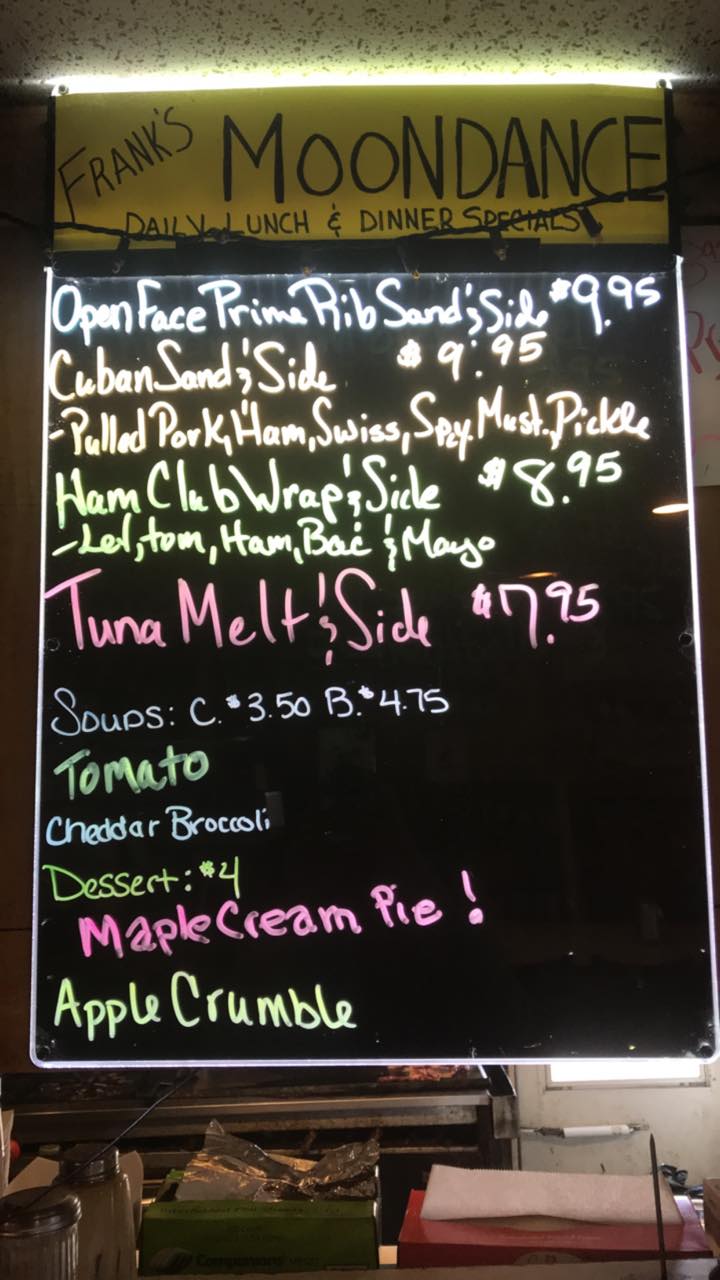 FRANK'S MOONDANCE
DAILY LUNCH & DINNER SPECIALS
Open Face Prime Rib Sand & Side $9.95
Cuban Sand & Side $9.95
-Pulled Pork, Ham, Swiss, Spcy. Must., Pickle
Ham Club Wrap & Side $8.95
-Let, tom, Ham, Bac & Mayo
Tuna Melt & Side $7.95
Soups: C. $3.50 B. $4.75
Tomato
Cheddar Broccoli
Dessert: $4
Maple Cream Pie !
Apple Crumble
Companions